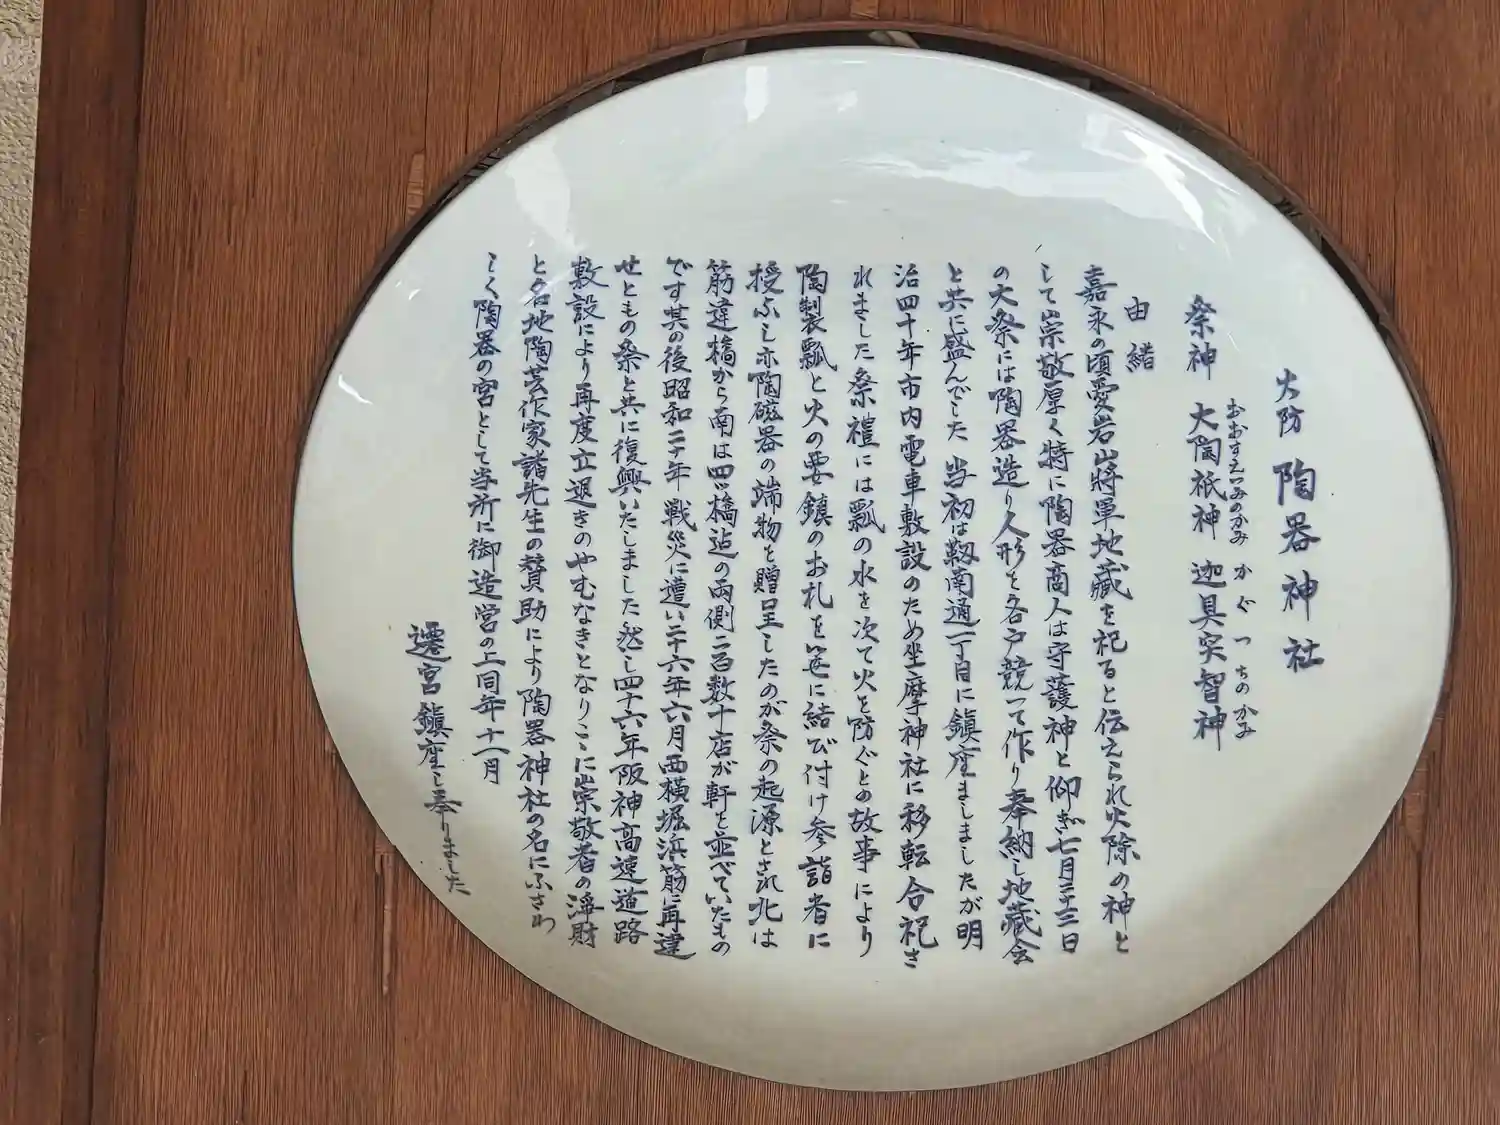 火防 陶器神社
祭神 大陶祇神 迦具突智神
おおすえつみのかみ かぐつちのかみ
由緒
嘉永の頃愛岩山將軍地藏を祀ると伝えられ火除の神と
して崇敬厚く特に陶器商人は守護神と仰ぎ七月二十三日
の大祭には陶器造り人形を各戸競って作り奉納し地藏会
と共に盛んでした 当初は靱南通一丁目に鎮座ましましたが明
治四十年市内電車敷設のため坐摩神社に移転合祀さ
れました祭禮には瓢の水を次て火を防ぐとの故事により
陶製瓢と火の要鎮のお札を笹に結び付け参詣者に
授ふし亦陶磁器の端物を贈呈したのが祭の起源とされ北は
筋違橋から南は四ッ橋迠の両側二百数十店が軒を並べていたもの
です其の後昭和二十年 戦災に遭い二十六年六月西横堀浜筋に再建
せともの祭と共に復興いたしました然し四十六年阪神高速道路
敷設により再度立退きのやむなきとなりここに崇敬者の浄財
と各地陶芸作家諸先生の賛助により陶器神社の名にふさわ
しく陶器の宮として当所に御造営の上同年十一月
遷宮鎮座し奉りました